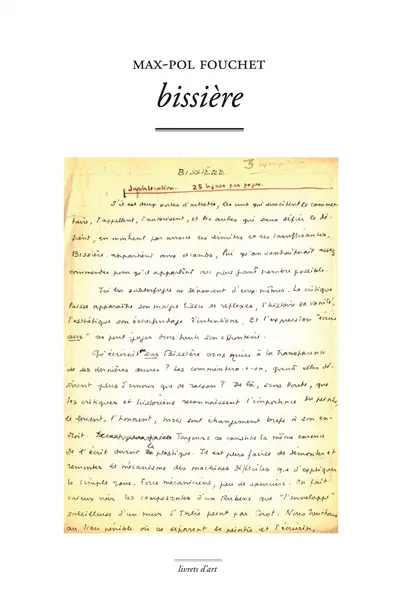 MAX-POL FOUCHET
bissière
BISSIÈRE
Justification. 25 lignes par pages.
S'il est deux sortes d'artistes, les uns qui suscitent le commen-
taire, l'appellent, l'autorisent, et les autres qui sans défier le dé-
fient, en montrent par avance les limites ou les insuffisances,
Bissière appartient aux seconds,
commenter pour qu'il appartînt au plus grand nombre possible.
Ici les subterfuges se dénoncent d'eux-mêmes. La critique
laisse apparaître son maigre tissu de réflexes, l'histoire sa vanité,
l'esthétique son échafaudage d'intentions. Et l'expression "écrire
sur" se peut juger dans toute son effronterie.
Qu'écrirait-on sur Bissière sans nuire à la transparence
de ses dernières œuvres ? Les commentera-t-on, quand elles dé-
sirent plus d'amour que de raison ? De là, sans doute, que
les critiques et historiens reconnaissent l'importance du peintre,
le louent, l'honorent, mais sont étrangement brefs à son en-
droit. Toujours se constate la même carence
de l'écrit devant le plastique. Il est plus facile de démonter et
remonter le mécanisme des machines difficiles que d'expliquer
la simple rose. Force mécaniciens, peu de sourciers. On fait
mieux voir les composantes d'un Rubens que "l'enveloppe"
soleilleuse d'un mur d'Italie peint par Corot. Nous touchons
au lieu pénible où se séparent le peintre et l'écrivain,
livrets d'art